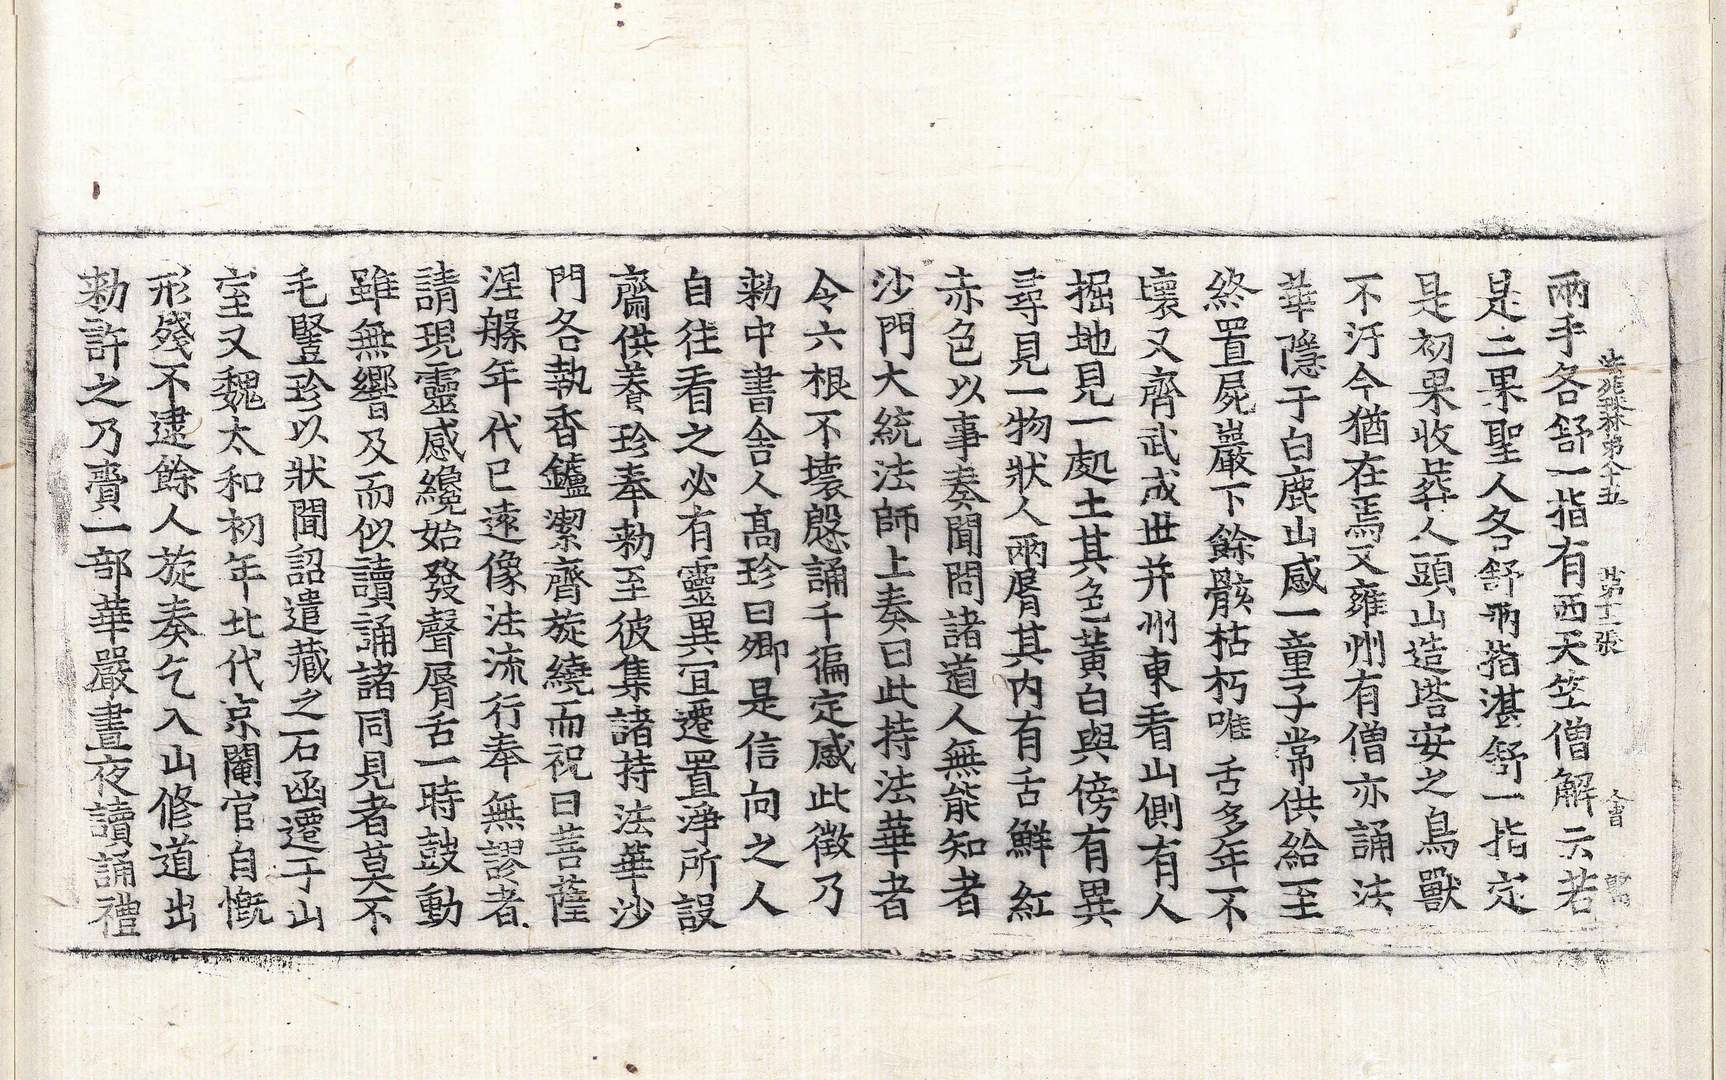 法苑珠林第八十五　第十二張
兩手各舒一指有西天竺僧解云若
是二果聖人各舒兩指湛舒一指定
是初果收葬人頭山造塔安之鳥獸
不汙今猶在焉又雍州有僧亦誦法
華隱于白鹿山感一童子常供給至
終置屍巖下餘骸枯朽唯舌多年不
壞又齊武成世并州東看山側有人
掘地見一處土其色黃白與傍有異
尋見一物狀人兩脣其內有舌鮮紅
赤色以事奏聞問諸道人無能知者
沙門大統法師上奏曰此持法華者
令六根不壞慇誦千徧定感此徵乃
勑中書舍人高珍曰卿是信向之人
自往看之必有靈異宜遷置淨所設
齋供養珍奉勑至彼集諸持法華沙
門各執香鑪潔齊旋繞而祝曰菩薩
涅槃年代已遠像法流行奉無謬者
請現靈感纔始發聲脣舌一時鼓動
雖無響及而似讀誦諸同見者莫不
毛豎珍以狀聞詔遣藏之石函遷于山
室又魏太和初年北代京閹官自慨
形殘不逮餘人旋奏乞入山修道出
勑許之乃賷一部華嚴晝夜讀誦禮